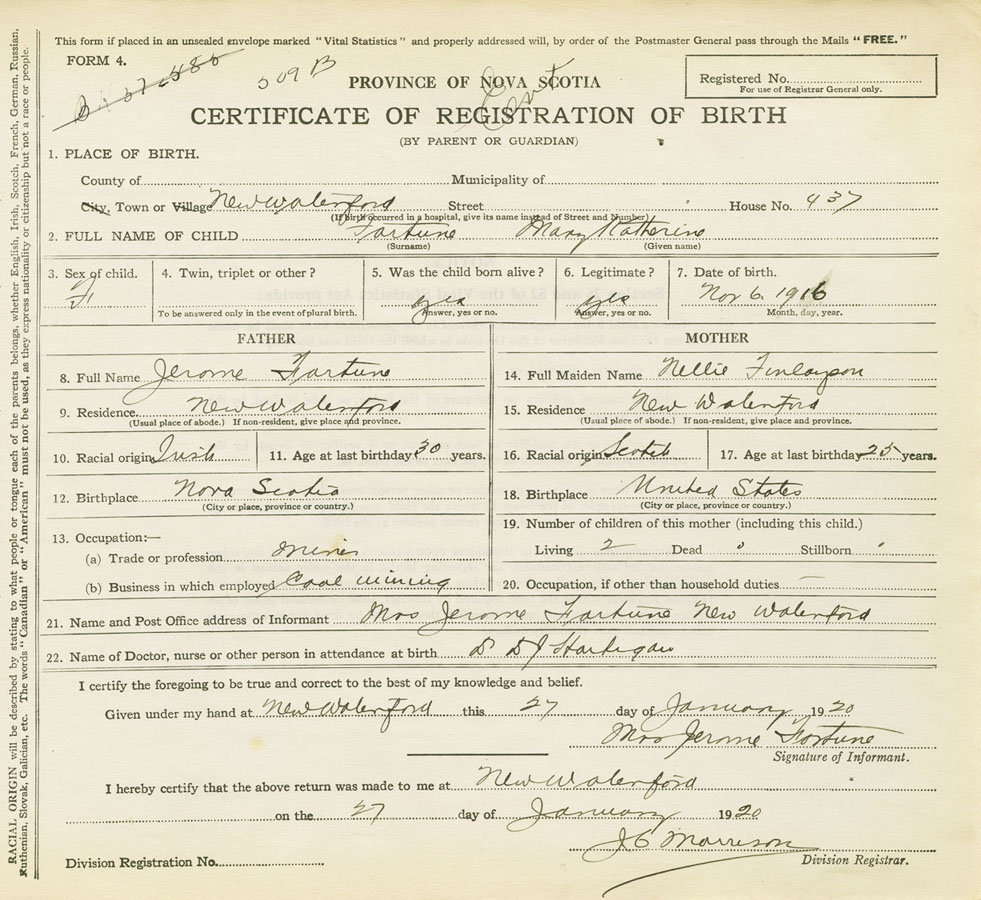 This form if placed in an unsealed envelope marked "Vital Statistics" and properly addressed will, by order of the Postmaster General pass through the Mails "FREE."
FORM 4.
509 B
PROVINCE OF NOVA SCOTIA
Registered No.
For use of Registrar General only.
CERTIFICATE OF REGISTRATION OF BIRTH
(BY PARENT OR GUARDIAN)
1. PLACE OF BIRTH.
County of Municipality of
City, Town or Village New Waterford Street House No. 437
(If birth occurred in a hospital, give its name instead of Street and Number)
2. FULL NAME OF CHILD Fortune Mary Katherine
(Surname) (Given name)
3. Sex of child. 4. Twin, triplet or other? 5. Was the child born alive? 6. Legitimate? 7. Date of birth.
F yes yes Nov 6. 1916
To be answered only in the event of plural birth. Answer, yes or no. Answer, yes or no. Month, day, year.
FATHER
8. Full Name Jerome Fortune
9. Residence New Waterford
(Usual place of abode.) If non-resident, give place and province.
10. Racial origin Irish 11. Age at last birthday 30 years.
12. Birthplace Nova Scotia
(City or place, province or country.)
13. Occupation:—
(a) Trade or profession miner
(b) Business in which employed Coal mining
MOTHER
14. Full Maiden Name Nellie Finlayson
15. Residence New Waterford
(Usual place of abode.) If non-resident, give place and province.
16. Racial origin Scotch 17. Age at last birthday 25 years.
18. Birthplace United States
(City or place, province or country.)
19. Number of children of this mother (including this child.)
Living 2 Dead Stillborn
20. Occupation, if other than household duties —
21. Name and Post Office address of Informant Mrs Jerome Fortune New Waterford
22. Name of Doctor, nurse or other person in attendance at birth Dr D J Hartigan
I certify the foregoing to be true and correct to the best of my knowledge and belief.
Given under my hand at New Waterford this 27 day of January 1920
Mrs Jerome Fortune
Signature of Informant.
I hereby certify that the above return was made to me at New Waterford
on the 27 day of January 1920
J C Morrison
Division Registration No. Division Registrar.
RACIAL ORIGIN will be described by stating to what people or tongue each of the parents belongs, whether English, Irish, Scotch, French, German, Russian,
Ruthenian, Slovak, Galician, etc. The words "Canadian" or "American" must not be used, as they express nationality or citizenship but not a race or people.